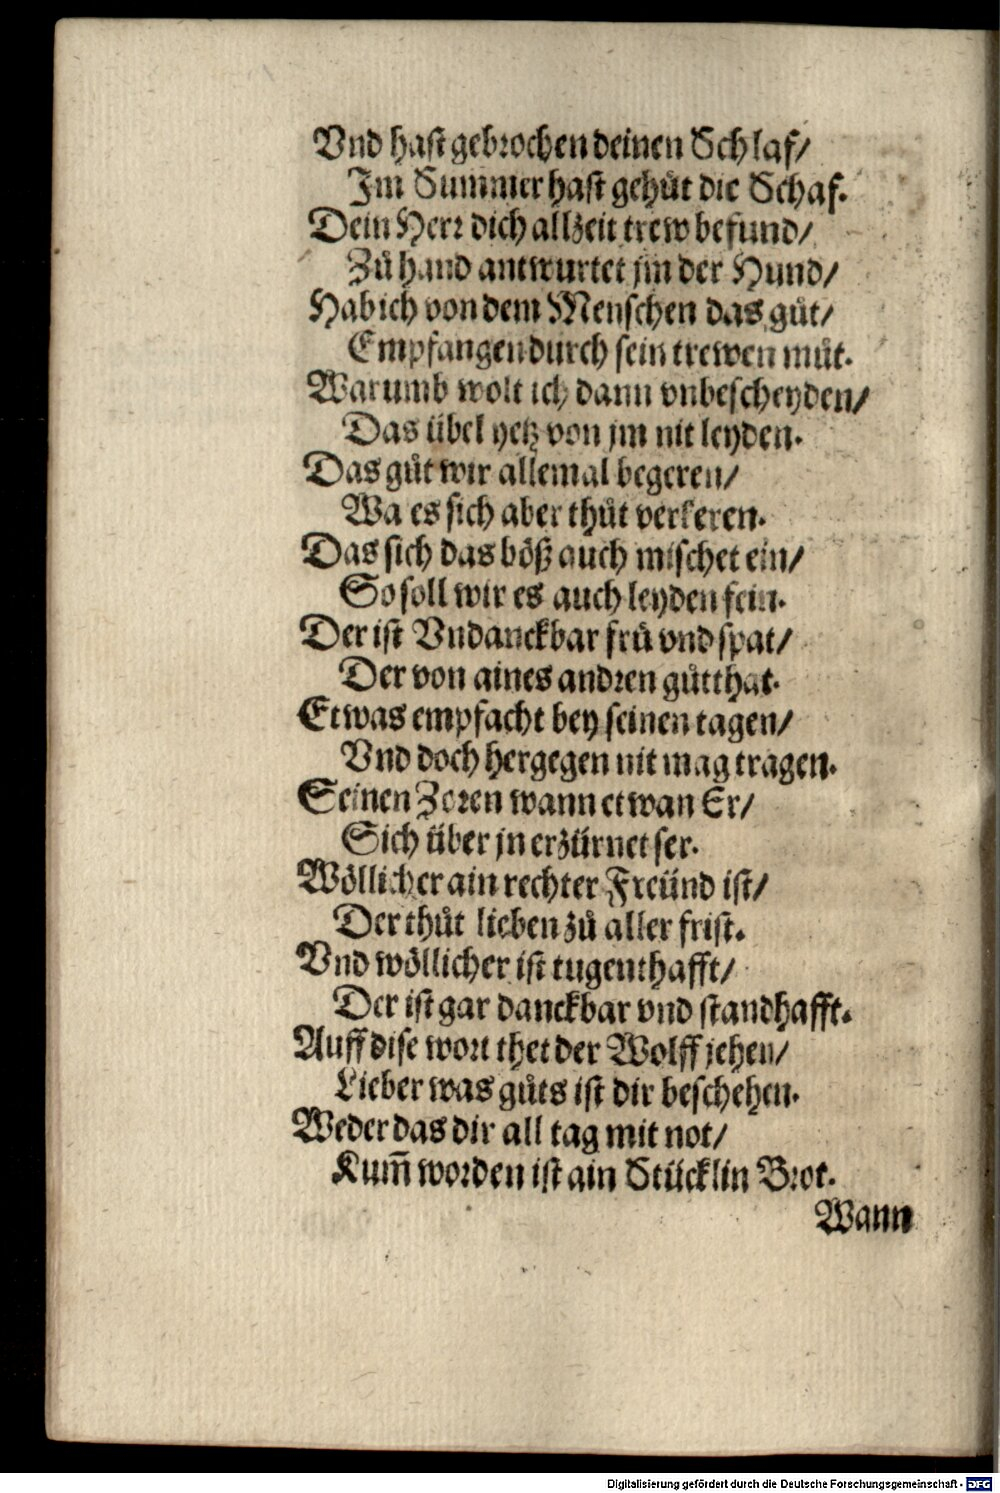 Vnd hast gebrochen deinen Schlaf/
Im Summer hast gehuͤt die Schaf.
Dein Herr dich allzeit trew befund/
Zuͦ hand antwurtet jm der Hund/
Hab ich von dem Menschen das guͦt/
Empfangen durch sein trewen muͦt.
Warumb wolt ich dann vnbescheyden/
Das übel yetz von jm nit leyden.
Das guͦt wir allemal begeren/
Wa es sich aber thuͦt verkeren.
Das sich das böß auch mischet ein/
So soll wir es auch leyden fein.
Der ist Vndanckbar fruͤ vnd spat/
Der von aines andren guͦtthat.
Etwas empfacht bey seinen tagen/
Vnd doch hergegen nit mag tragen.
Seinen Zoren wann etwan Er/
Sich über jn erzürnet ser.
Wöllicher ain rechter Freünd ist/
Der thuͦt lieben zuͦ aller frist.
Vnd wöllicher ist tugenthafft/
Der ist gar danckbar vnd standhafft.
Auff dise wort thet der Wolff jehen/
Lieber was guͦts ist dir beschehen.
Weder das dir all tag mit not/
Kum̃ worden ist ain Stücklin Brot.
Wann
Digitalisierung gefördert durch die Deutsche Forschungsgemeinschaft - DFG